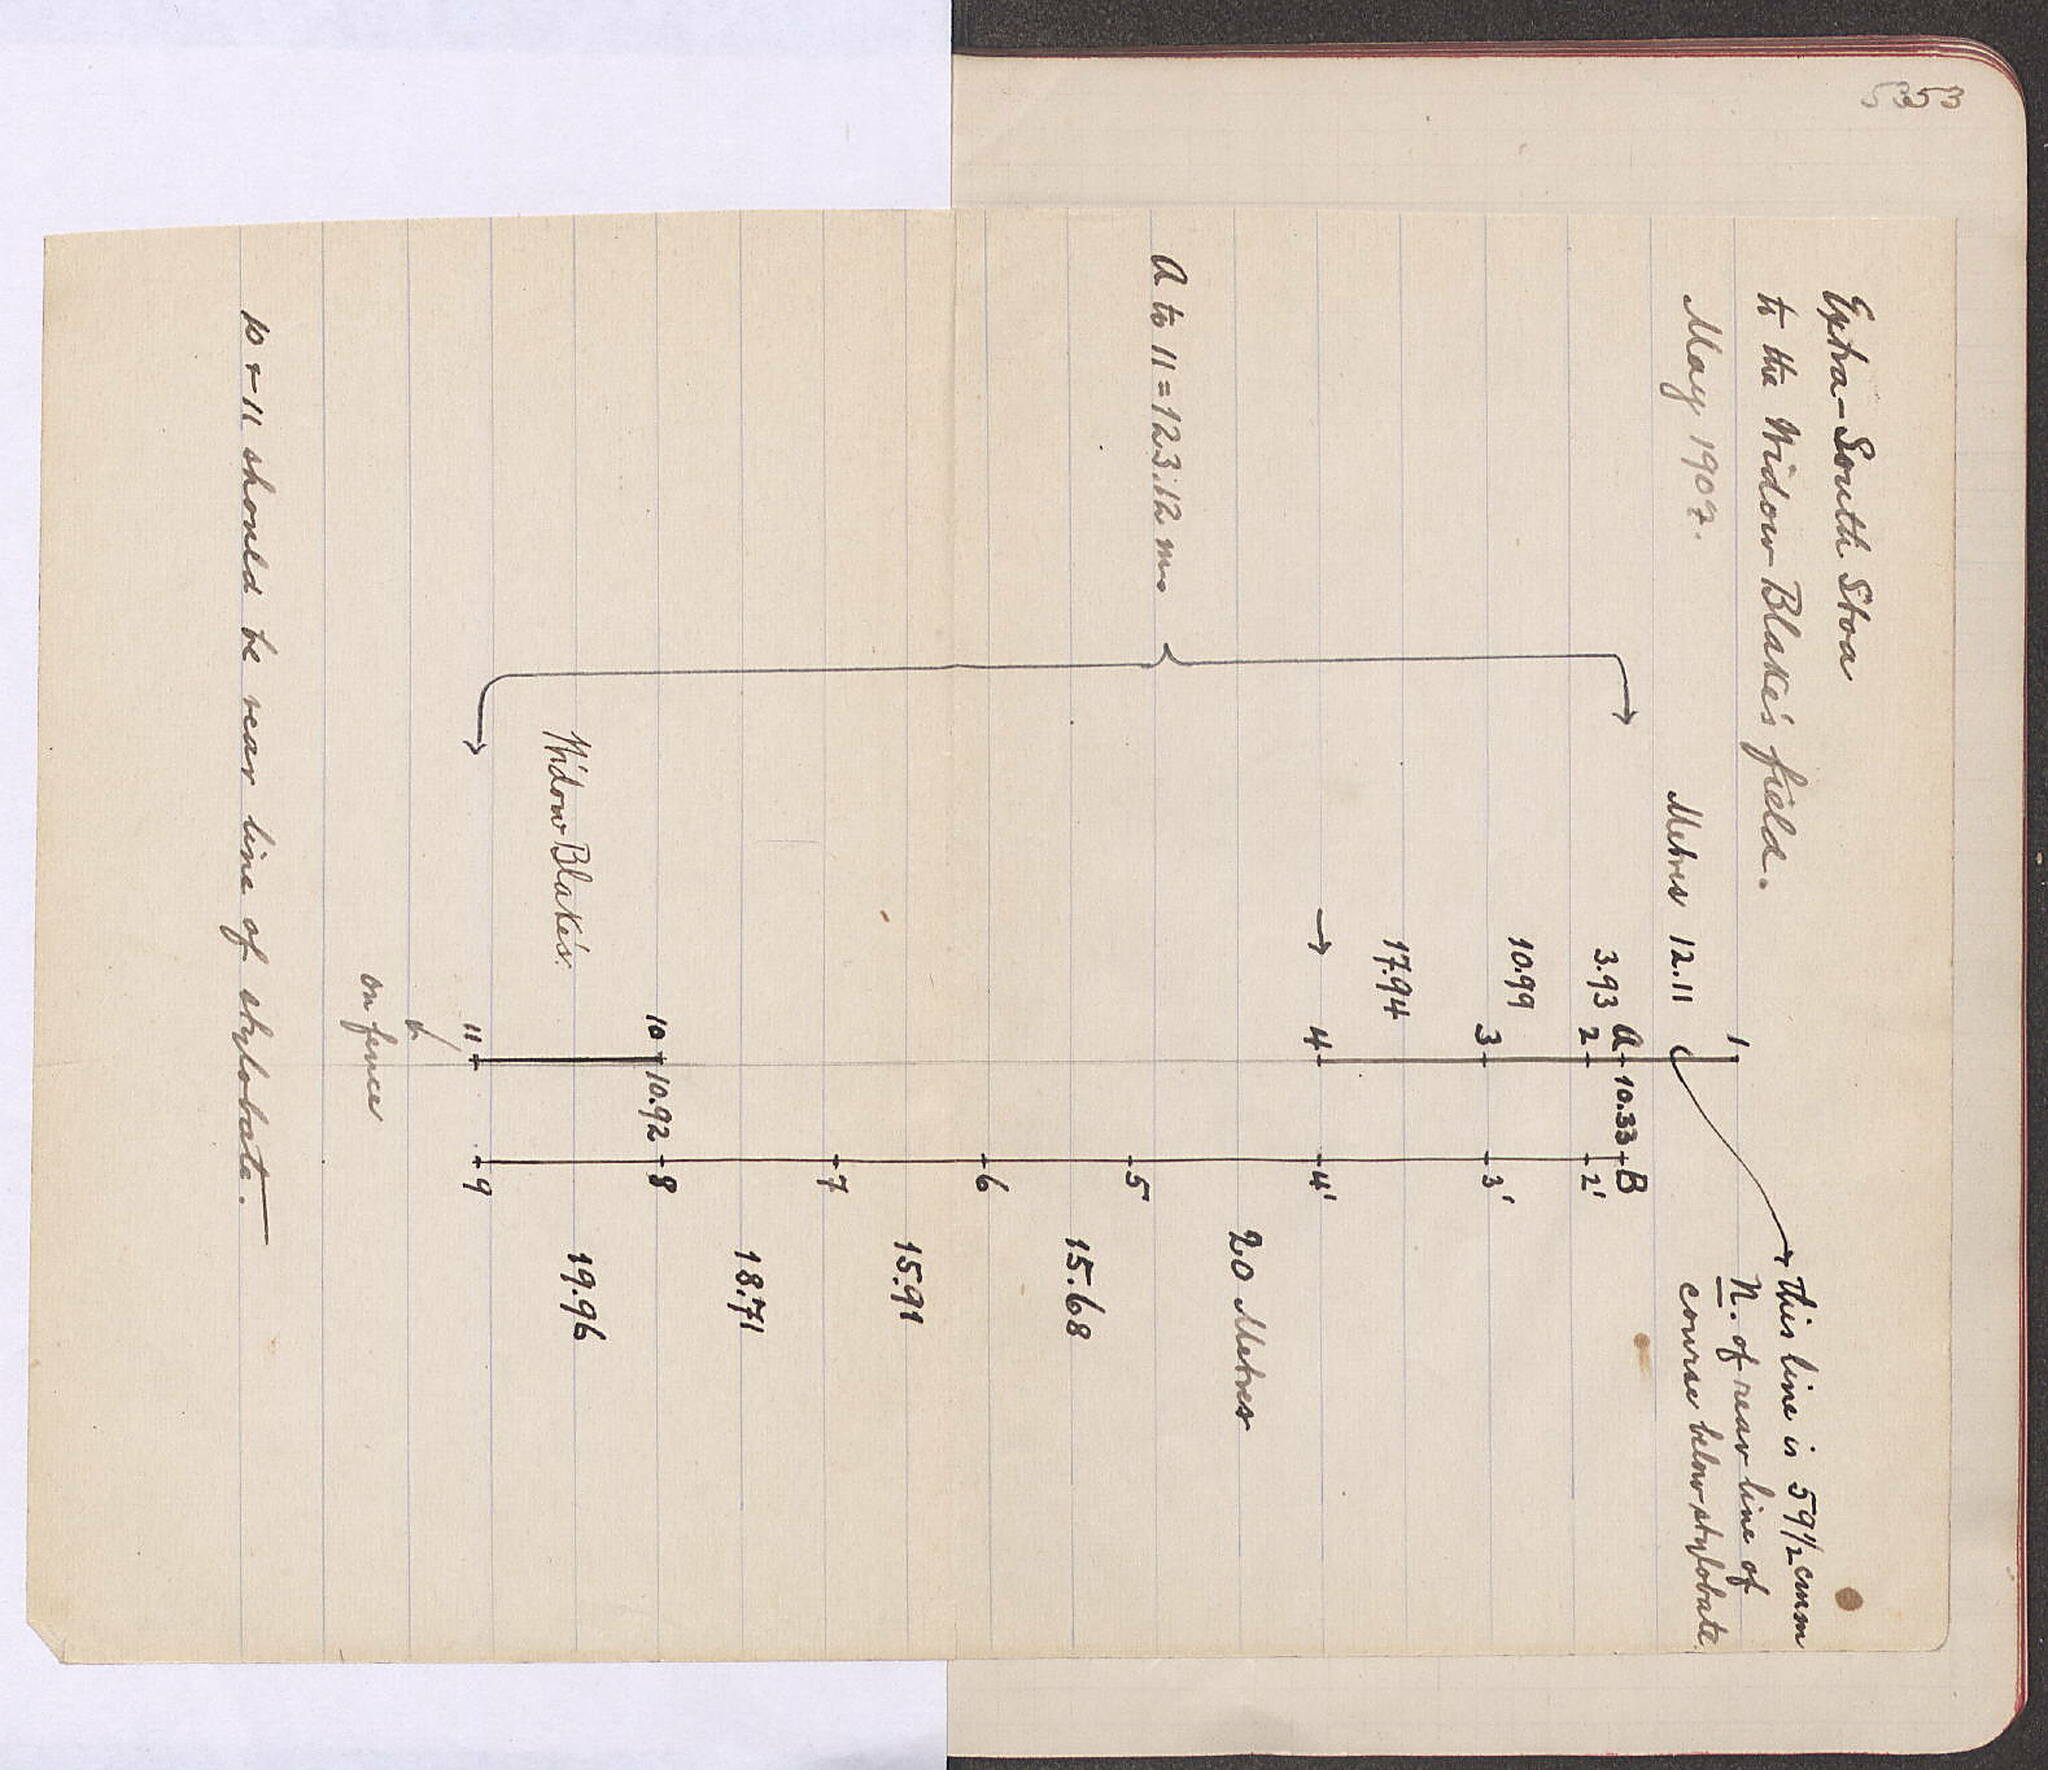 53 53
Extra-South Stoa
to the Widow Blake's field.
May 1907.
Metres 12.11
1
This line is 59 1/2 cmm
N. of rear line of
course below stylobate
3.93
A
10.33
B
2
2'
10.99
3
3'
17.94
4
4'
20 Metres
A to 11 = 123.12 m.
5
15.68
6
15.91
7
18.71
10
10.92
8
Widow Blake's.
19.96
11
9
on fence
10 + 11 should be rear line of stylobate.